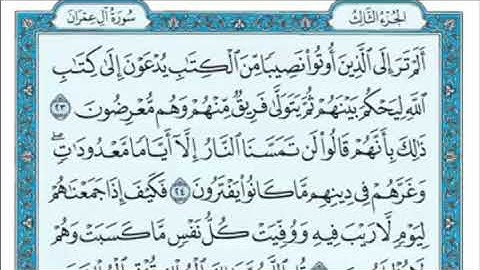 الجزء الثالث
سورة آل عمران
أَلَمْ تَرَ إِلَى الَّذِينَ أُوتُوا۟ نَصِيبًا مِّنَ الْكِتَٰبِ يُدْعَوْنَ إِلَىٰ كِتَٰبِ
اللَّهِ لِيَحْكُمَ بَيْنَهُمْ ثُمَّ يَتَوَلَّىٰ فَرِيقٌ مِّنْهُمْ وَهُم مُّعْرِضُونَ ٢٣
ذَٰلِكَ بِأَنَّهُمْ قَالُوا۟ لَن تَمَسَّنَا النَّارُ إِلَّآ أَيَّامًا مَّعْدُودَٰتٍ ۖ
وَغَرَّهُمْ فِى دِينِهِم مَّا كَانُوا۟ يَفْتَرُونَ ٢٤ فَكَيْفَ إِذَا جَمَعْنَٰهُمْ
لِيَوْمٍ لَّا رَيْبَ فِيهِ وَوُفِّيَتْ كُلُّ نَفْسٍ مَّا كَسَبَتْ وَهُمْ